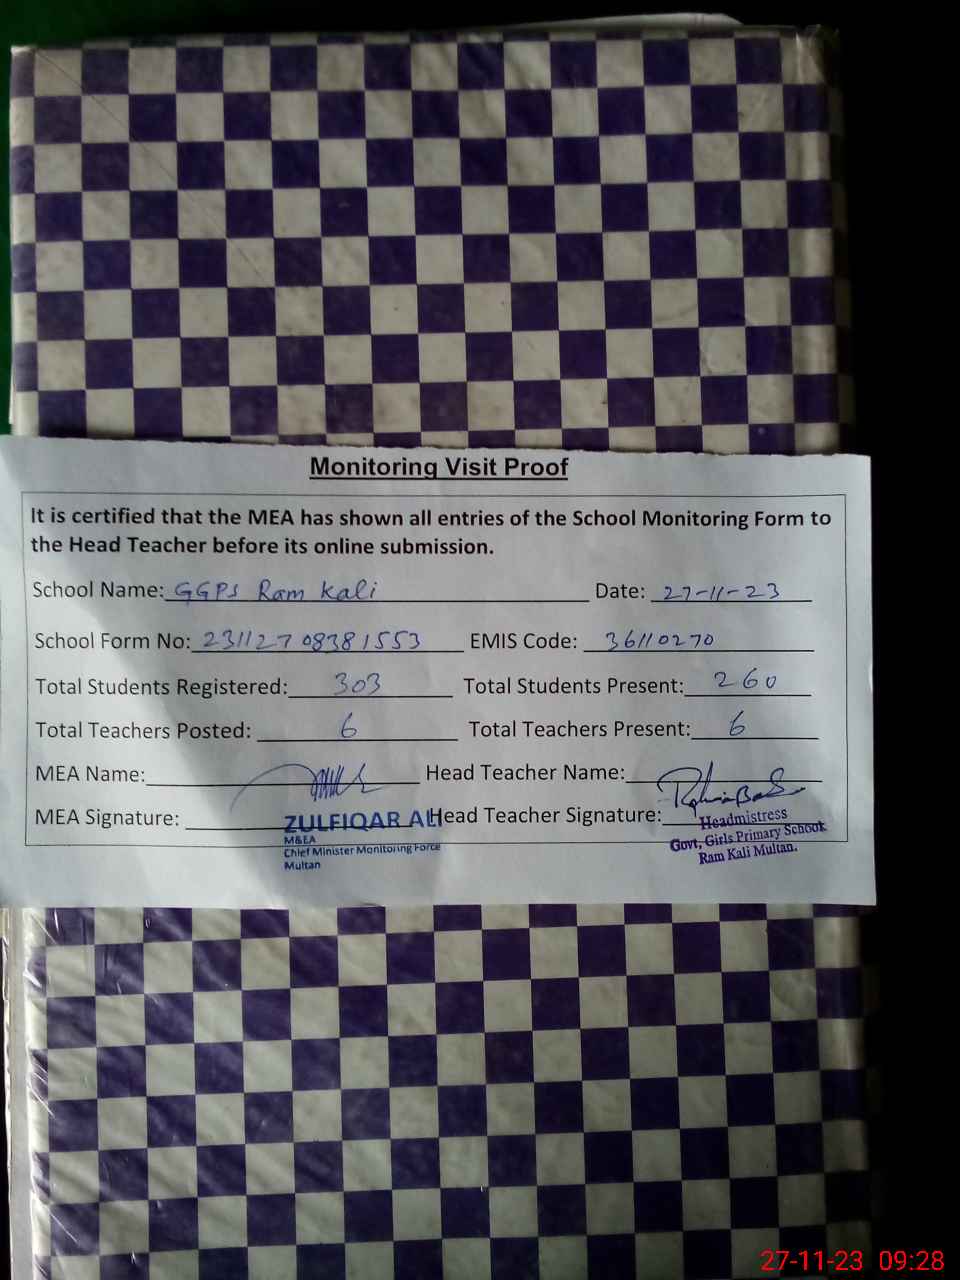 Monitoring Visit Proof
It is certified that the MEA has shown all entries of the School Monitoring Form to
the Head Teacher before its online submission.
School Name: GGPS Ram Kali Date: 27-11-23
School Form No: 23112708381553 EMIS Code: 36110270
Total Students Registered: 303 Total Students Present: 260
Total Teachers Posted: 6 Total Teachers Present: 6
MEA Name: Head Teacher Name:
MEA Signature: Head Teacher Signature:
ZULFIQAR ALI
M&EA
Chief Minister Monitoring Force
Multan
Headmistress
Govt, Girls Primary School
Ram Kali Multan.
27-11-23 09:28